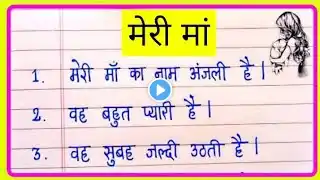 मेरी मां
1. मेरी माँ का नाम अंजली है |
2. वह बहुत प्यारी है |
3. वह सुबह जल्दी उठती है |